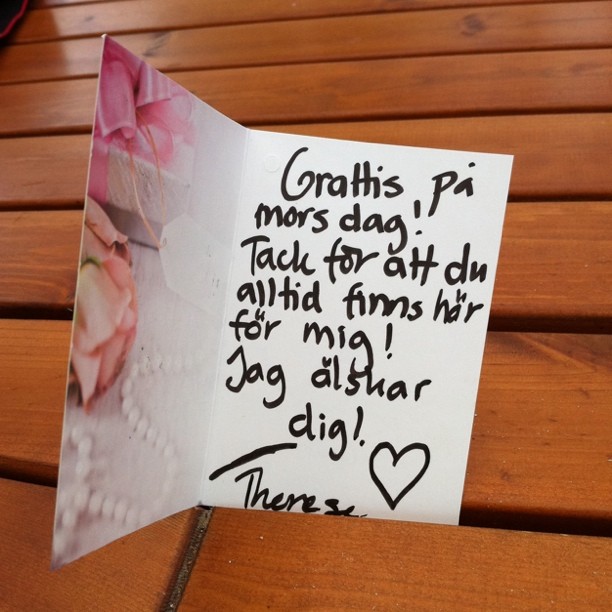 Grattis på
mors dag!
Tack för att du
alltid finns här
för mig!
Jag älskar
dig!
Therese